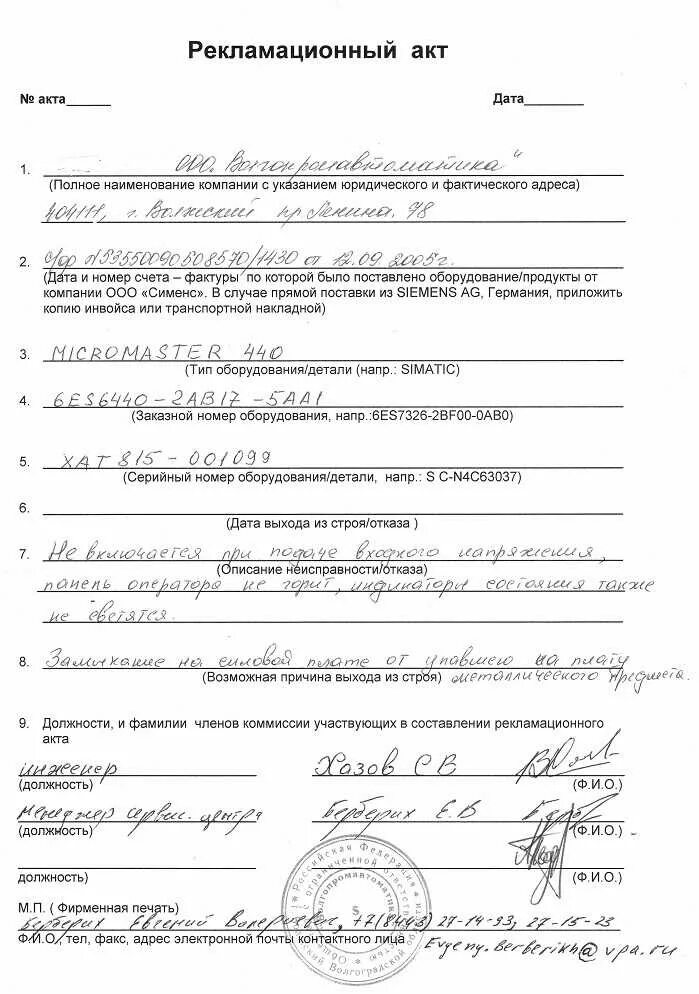 Рекламационный акт
№ акта______ Дата________
1. ООО. Волгопромавтоматика"
(Полное наименование компании с указанием юридического и фактического адреса)
404111, г. Волжский пр Ленина. 98
2. С/ф №53550090508570/1430 от 12.09.2005г.
(Дата и номер счета – фактуры по которой было поставлено оборудование/продукты от
компании ООО «Сименс». В случае прямой поставки из SIEMENS AG, Германия, приложить
копию инвойса или транспортной накладной)
3. MICROMASTER 440
(Тип оборудования/детали (напр.: SIMATIC)
4. 6ES6440-2AB17-5AA1
(Заказной номер оборудования, напр.:6ES7326-2BF00-0AB0)
5. XAT815-001099
(Серийный номер оборудования/детали, напр.: S C-N4C63037)
6.
(Дата выхода из строя/отказа )
7. Не включается при подаче входного напряжения,
(Описание неисправности/отказа)
панель оператора не горит, индикаторы состояния также
не светятся.
8. Замыкание на силовой плате от упавшего на плату
(Возможная причина выхода из строя) металлического предмета.
9. Должности, и фамилии членов коммиссии участвующих в составлении рекламационного
акта
инженер Хазов С В
(должность) (Ф.И.О.)
менеджер сервис. центра Берберих Е.В
(должность) (Ф.И.О.)
должность) (Ф.И.О.)
М.П. ( Фирменная печать)
Берберих Евгений Валериевич, +7(8443) 27-14-93; 27-15-23
Ф.И.О., тел, факс, адрес электронной почты контактного лица Evgeny.Berberikh@vpa.ru
Российская Федерация
Волгопромавтоматика